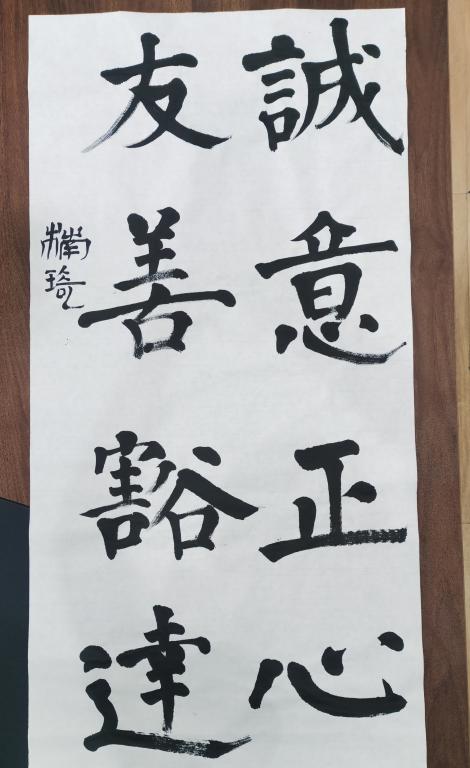 誠意正心
友善豁達
楠琦